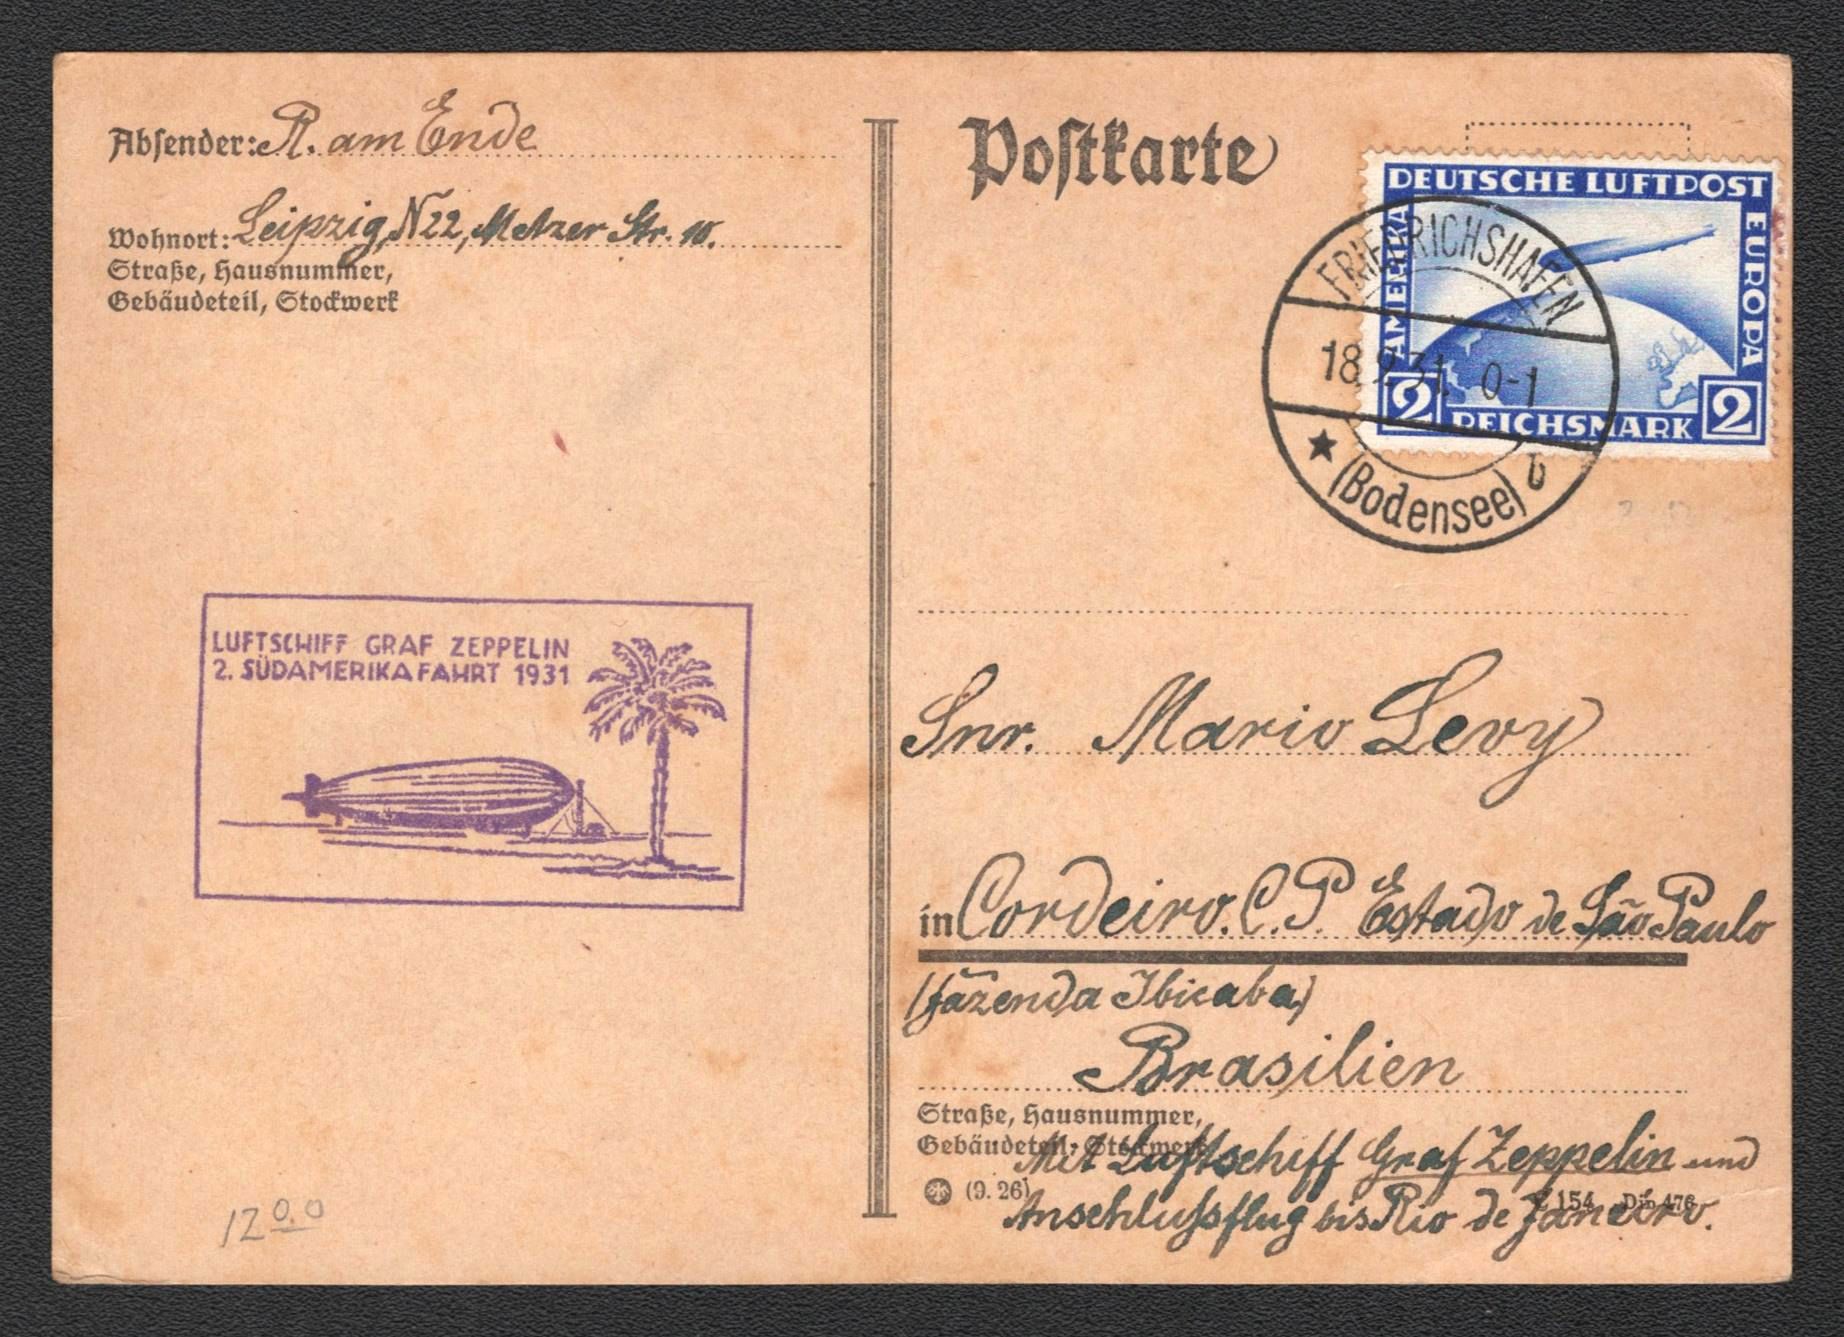 Absender: R. am Ende
Wohnort: Leipzig, N22, Metzer Str. 10.
Straße, Hausnummer,
Gebäudeteil, Stockwerk
LUFTSCHIFF GRAF ZEPPELIN
2. SÜDAMERIKAFAHRT 1931
12 00
Postkarte
DEUTSCHE LUFTPOST
EUROPA
AMERIKA
2 REICHSMARK 2
FRIEDRICHSHAFEN
18.9.31. 0-1
(Bodensee) b
Snr. Mario Levy
in Cordeiro. C. P. Estado de São Paulo
(fazenda Ibicaba)
Brasilien
Straße, Hausnummer,
Gebäudeteil, Stockwerk
Mit Luftschiff Graf Zeppelin und
(9. 26) C 154 Din 476
Anschlußflug bis Rio de Janeiro.